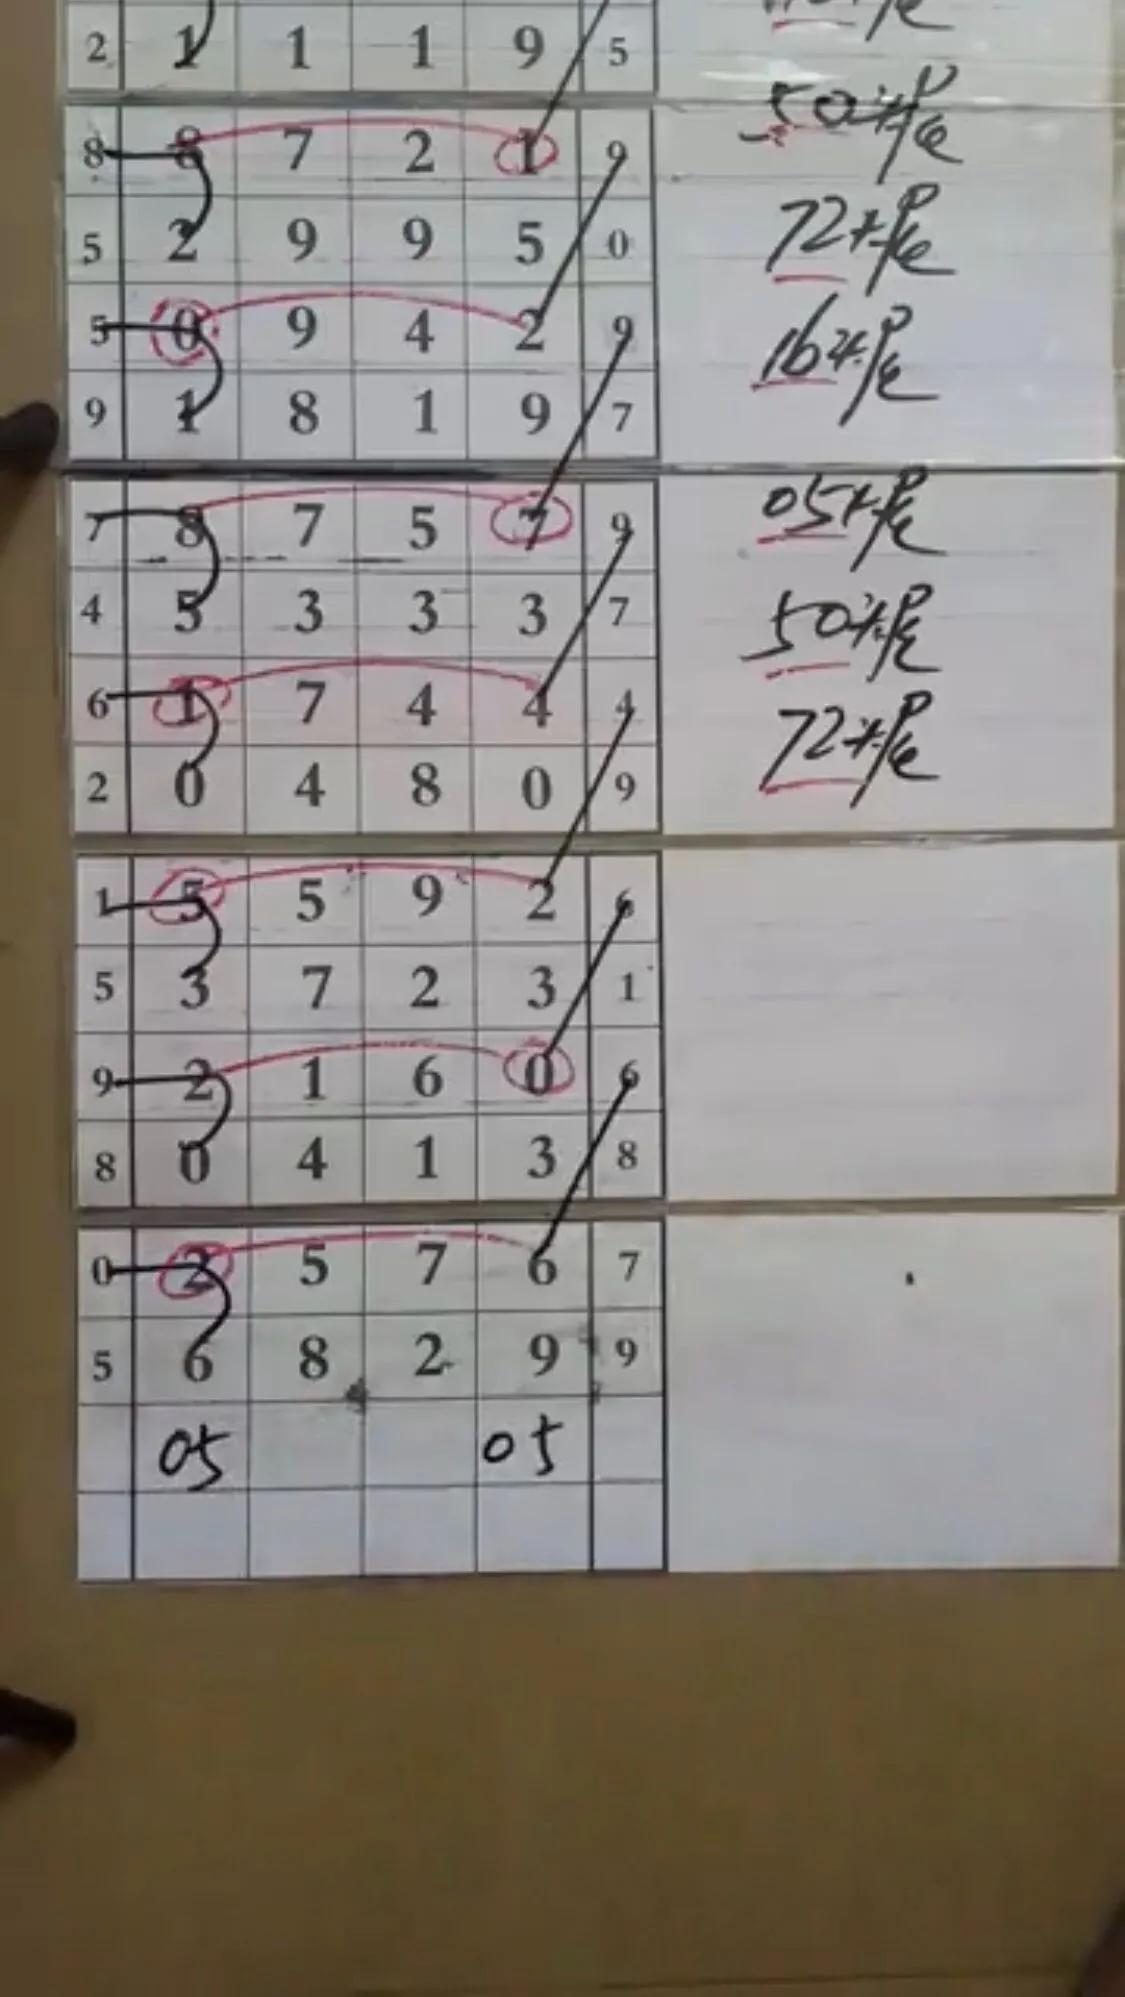 2 1 1 1 9 5
8 8 7 2 1 9
50
5 2 9 9 5 0
72
5 0 9 4 2 9
16
9 1 8 1 9 7
7 8 7 5 7 9
05
4 5 3 3 3 7
50
6 1 7 4 4 4
72
2 0 4 8 0 9
1 5 5 9 2 6
5 3 7 2 3 1
9 2 1 6 0 6
8 0 4 1 3 8
0 2 5 7 6 7
5 6 8 2 9 9
05 05